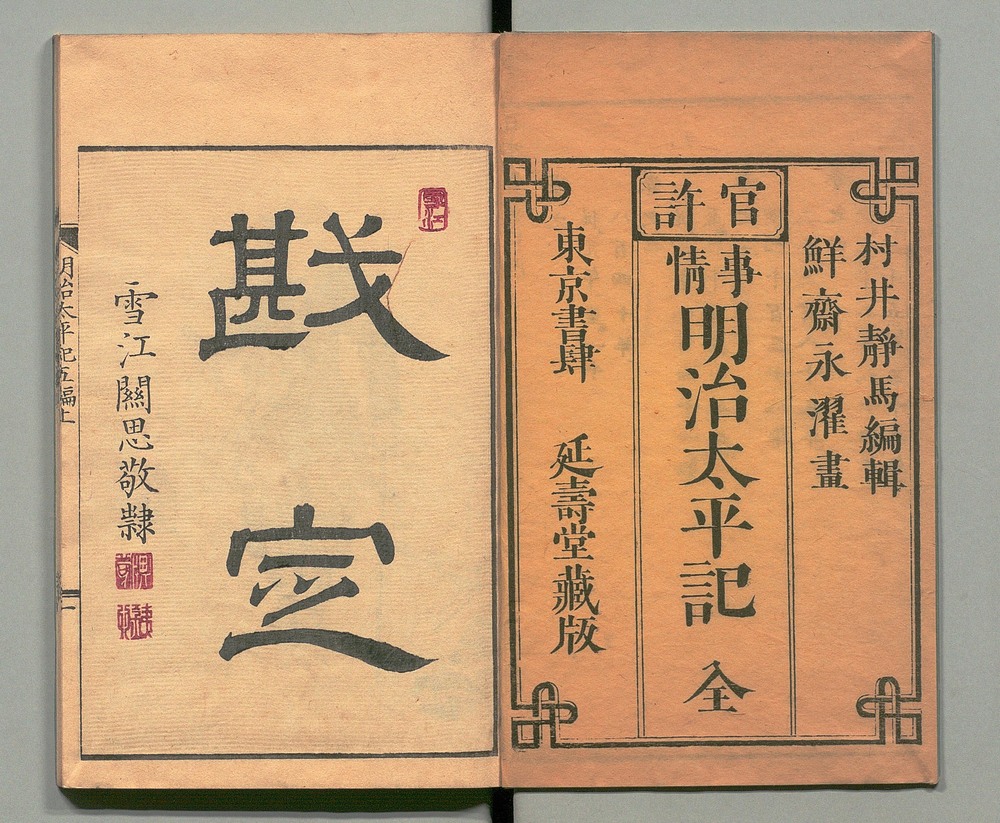 官許
村井靜馬編輯
鮮齋永濯畫
事情
明治太平記 全
東京書肆 延壽堂藏版
戡定
雪江關思敬隸
明治太平記五編上
一